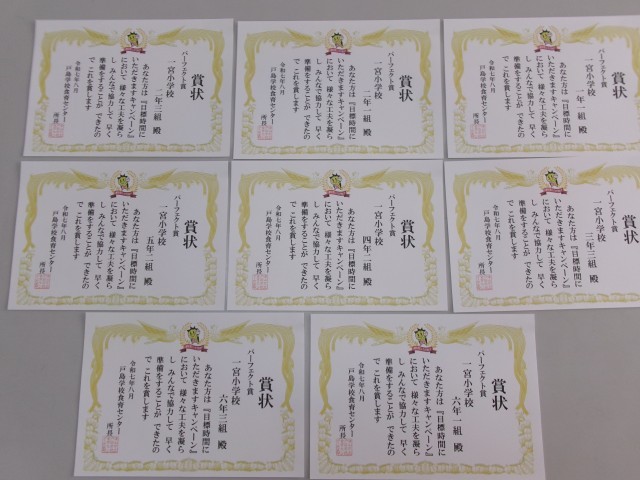 賞状
パーフェクト賞
一宮小学校
二年三組 殿
あなた方は『目標時間に
いただきますキャンペーン』
において 様々な工夫を凝ら
し みんなで協力して 早く
準備をすることが できたの
で これを賞します
令和七年八月
戸島学校食育センター
所長
賞状
パーフェクト賞
一宮小学校
二年一組 殿
あなた方は『目標時間に
いただきますキャンペーン』
において 様々な工夫を凝ら
し みんなで協力して 早く
準備をすることが できたの
で これを賞します
令和七年八月
戸島学校食育センター
所長
賞状
パーフェクト賞
一宮小学校
一年一組 殿
あなた方は『目標時間に
いただきますキャンペーン』
において 様々な工夫を凝ら
し みんなで協力して 早く
準備をすることが できたの
で これを賞します
令和七年八月
戸島学校食育センター
所長
賞状
パーフェクト賞
一宮小学校
五年二組 殿
あなた方は『目標時間に
いただきますキャンペーン』
において 様々な工夫を凝ら
し みんなで協力して 早く
準備をすることが できたの
で これを賞します
令和七年八月
戸島学校食育センター
所長
賞状
パーフェクト賞
一宮小学校
四年二組 殿
あなた方は『目標時間に
いただきますキャンペーン』
において 様々な工夫を凝ら
し みんなで協力して 早く
準備をすることが できたの
で これを賞します
令和七年八月
戸島学校食育センター
所長
賞状
パーフェクト賞
一宮小学校
三年三組 殿
あなた方は『目標時間に
いただきますキャンペーン』
において 様々な工夫を凝ら
し みんなで協力して 早く
準備をすることが できたの
で これを賞します
令和七年八月
戸島学校食育センター
所長
賞状
パーフェクト賞
一宮小学校
六年三組 殿
あなた方は『目標時間に
いただきますキャンペーン』
において 様々な工夫を凝ら
し みんなで協力して 早く
準備をすることが できたの
で これを賞します
令和七年八月
戸島学校食育センター
所長
賞状
パーフェクト賞
一宮小学校
六年一組 殿
あなた方は『目標時間に
いただきますキャンペーン』
において 様々な工夫を凝ら
し みんなで協力して 早く
準備をすることが できたの
で これを賞します
令和七年八月
戸島学校食育センター
所長